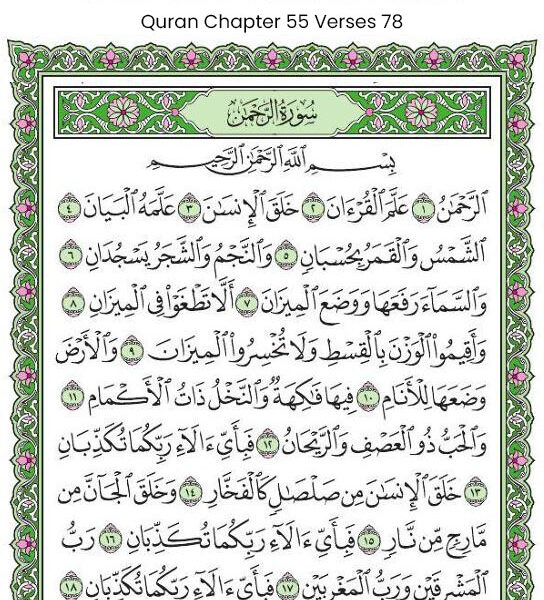 Quran Chapter 55 Verses 78
سُورَةُ الرَّحۡمَٰن
بِسۡمِ ٱللَّهِ ٱلرَّحۡمَٰنِ ٱلرَّحِيمِ
ٱلرَّحۡمَٰنُ ١ عَلَّمَ ٱلۡقُرۡءَانَ ٢ خَلَقَ ٱلۡإِنسَٰنَ ٣ عَلَّمَهُ ٱلۡبَيَانَ ٤
ٱلشَّمۡسُ وَٱلۡقَمَرُ بِحُسۡبَانٖ ٥ وَٱلنَّجۡمُ وَٱلشَّجَرُ يَسۡجُدَانِ ٦
وَٱلسَّمَآءَ رَفَعَهَا وَوَضَعَ ٱلۡمِيزَانَ ٧ أَلَّا تَطۡغَوۡاْ فِي ٱلۡمِيزَانِ ٨
وَأَقِيمُواْ ٱلۡوَزۡنَ بِٱلۡقِسۡطِ وَلَا تُخۡسِرُواْ ٱلۡمِيزَانَ ٩ وَٱلۡأَرۡضَ
وَضَعَهَا لِلۡأَنَامِ ١٠ فِيهَا فَٰكِهَةٞ وَٱلنَّخۡلُ ذَاتُ ٱلۡأَكۡمَامِ ١١
وَٱلۡحَبُّ ذُو ٱلۡعَصۡفِ وَٱلرَّيۡحَانُ ١٢ فَبِأَيِّ ءَالَآءِ رَبِّكُمَا تُكَذِّبَانِ
١٣ خَلَقَ ٱلۡإِنسَٰنَ مِن صَلۡصَٰلٖ كَٱلۡفَخَّارِ ١٤ وَخَلَقَ ٱلۡجَآنَّ مِن
مَّارِجٖ مِّن نَّارٖ ١٥ فَبِأَيِّ ءَالَآءِ رَبِّكُمَا تُكَذِّبَانِ ١٦ رَبُّ
ٱلۡمَشۡرِقَيۡنِ وَرَبُّ ٱلۡمَغۡرِبَيۡنِ ١٧ فَبِأَيِّ ءَالَآءِ رَبِّكُمَا تُكَذِّبَانِ ١٨